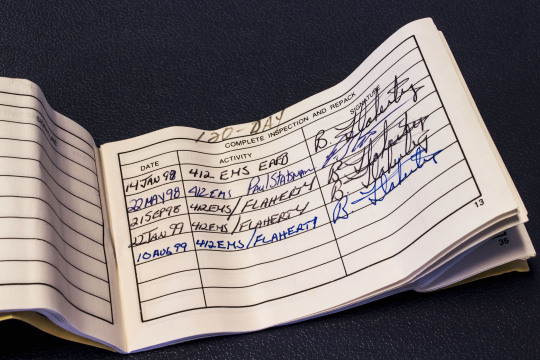 120-DAY
COMPLETE INSPECTION AND REPACK
DATE ACTIVITY SIGNATURE
14 JAN 98 412 EMS B. Flaherty
22 MAY 98 412 EMS Paul
21 SEP 98 412 EMS/FLAHERTY B. Flaherty
22 JAN 99 412 EMS/FLAHERTY B. Flaherty
10 AUG 99 412 EMS/FLAHERTY B. Flaherty
13
35